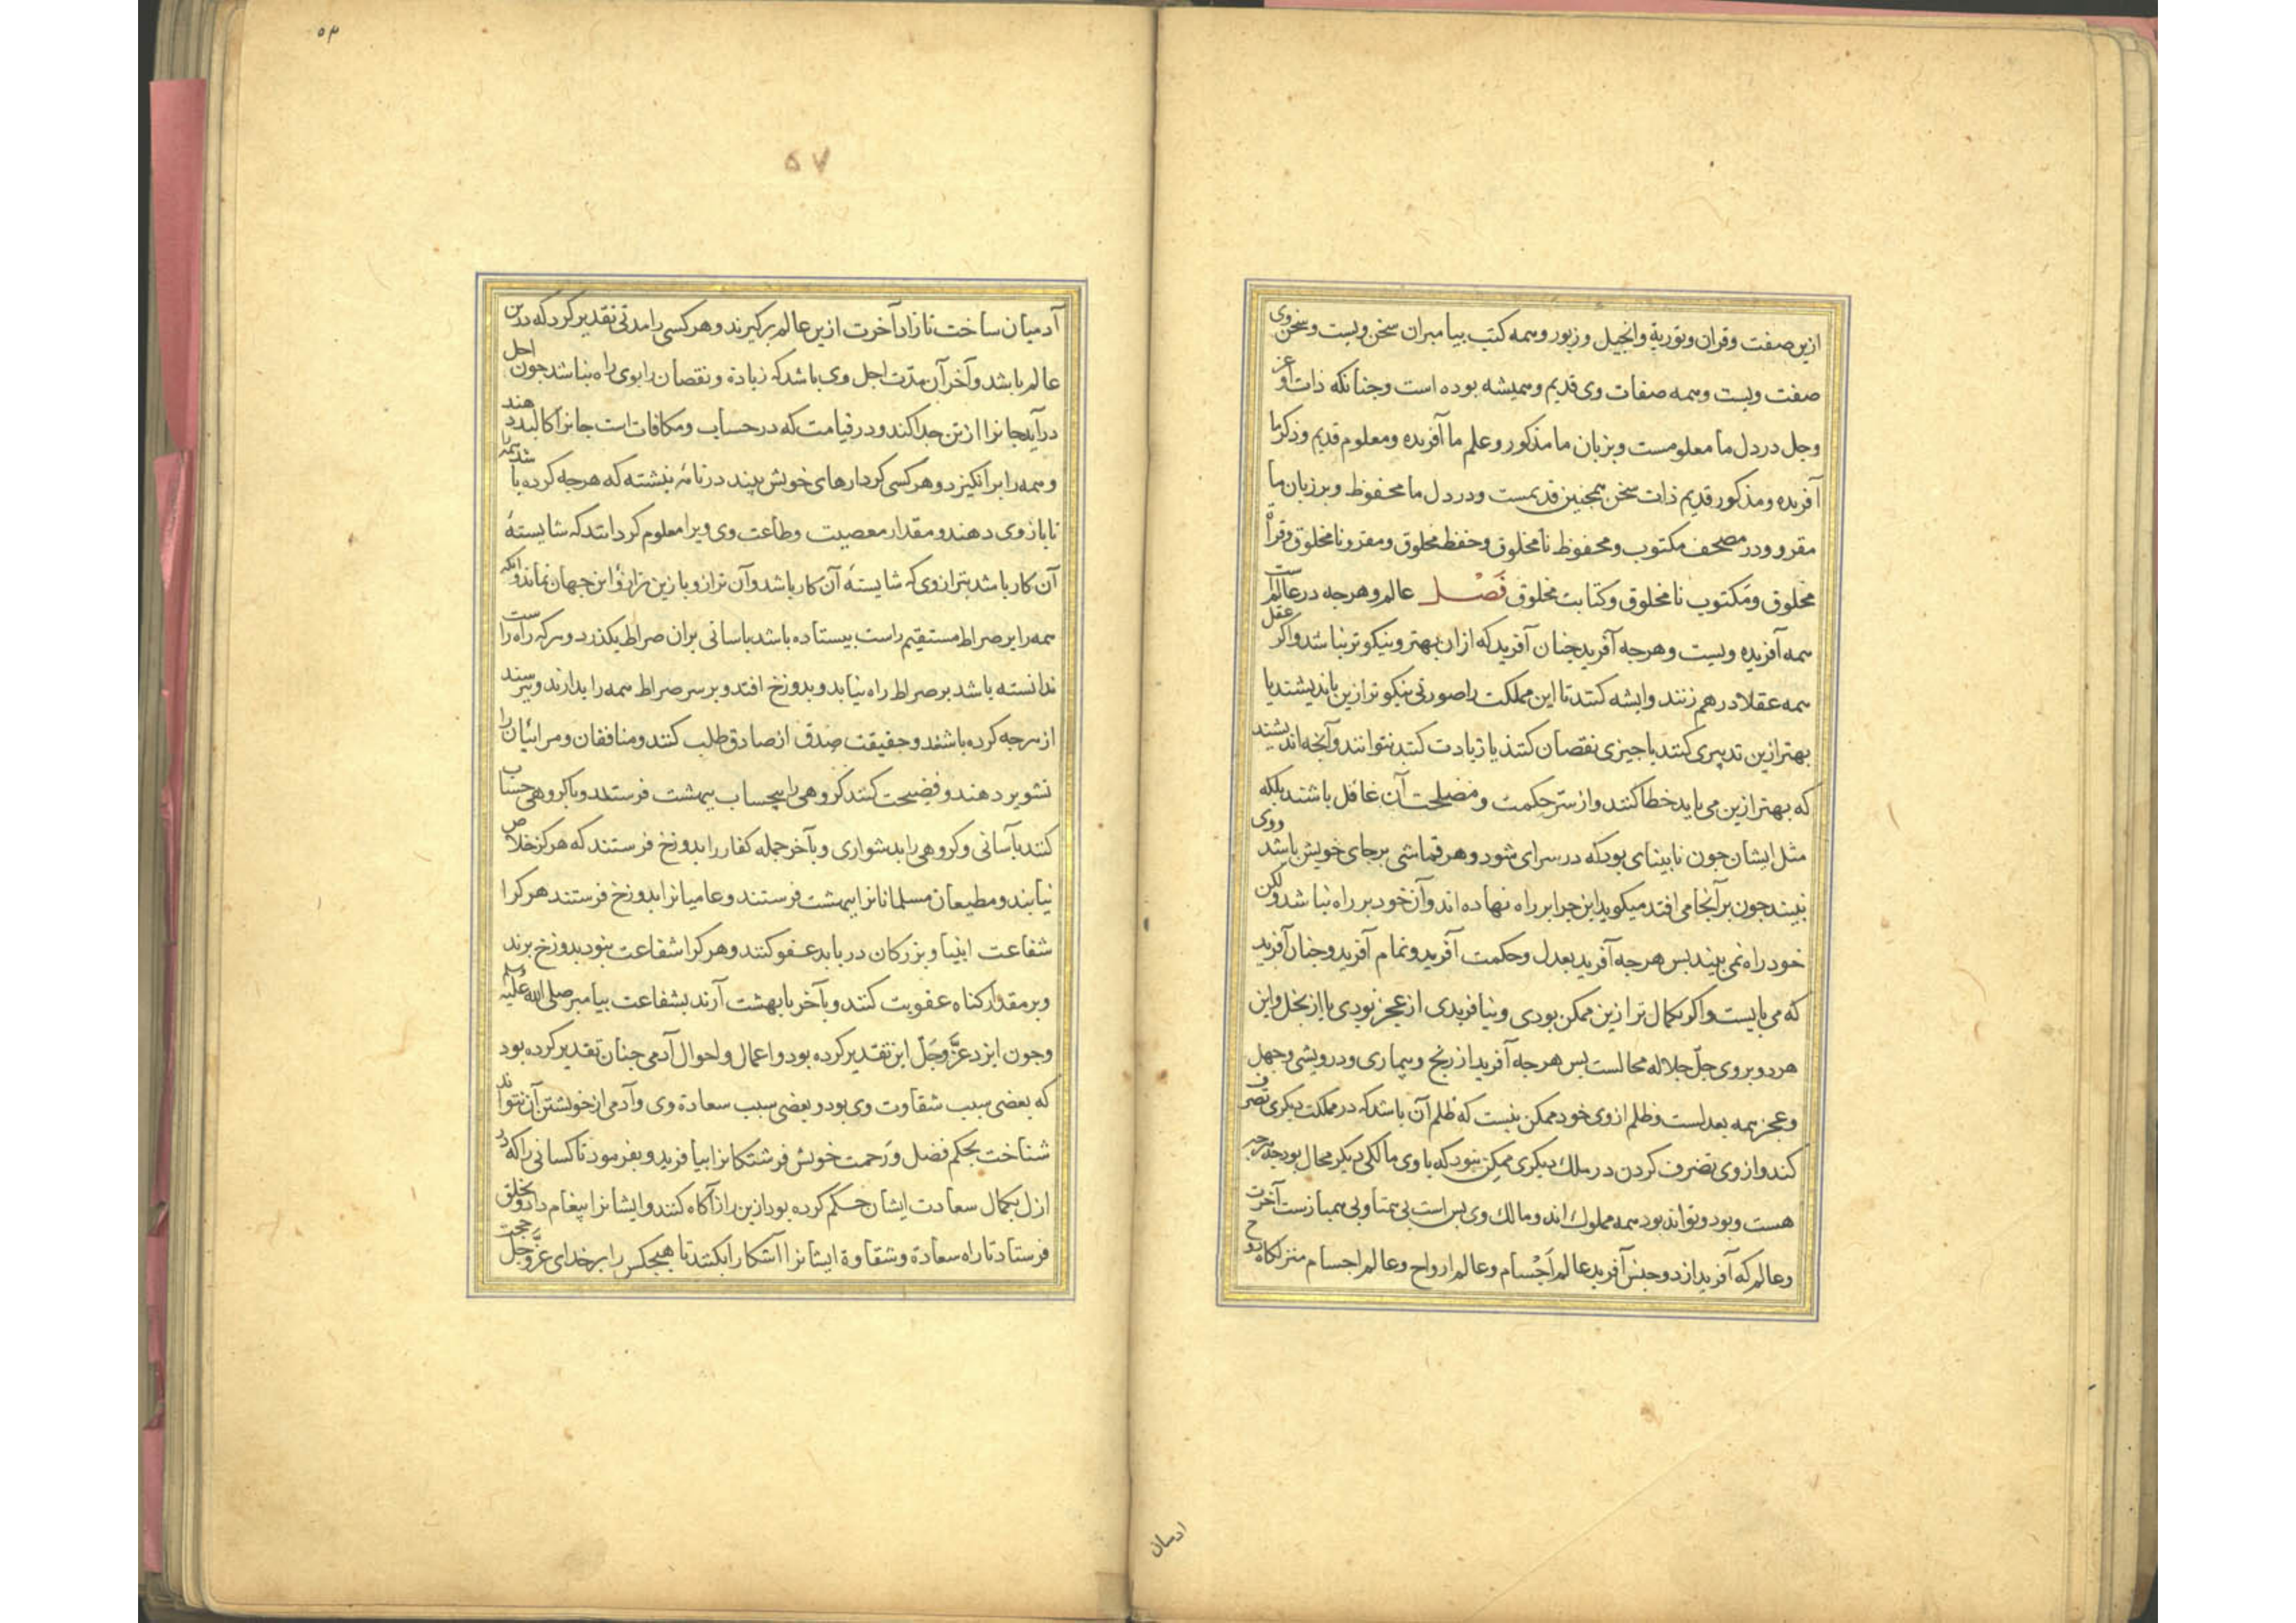 ازین صفت و قران و توریة و انجیل و زبور و همه کتب بیامبران سخن ویست و سخن وی
صفت ویست و همه صفات وی قدیم و همیشه بوده است و جنانکه ذات او عز
و جل در دل ما معلومست و بزبان ما مذکور و علم ما آفریده و معلوم قدیم و ذکر ما
آفریده و مذکور قدیم ذات سخن همجنین قدیمست و در دل ما محفوظ و بر زبان ما
مقرو و در مصحف مکتوب و محفوظ نامخلوق و حفظ مخلوق و مقرو نامخلوق و قراة
مخلوق و مکتوب نامخلوق و کتابت مخلوق فصل عالم و هرجه در عالمست
همه آفریده ویست و هرجه آفرید جنان آفرید که ازان بهتر و نیکوتر نباشد و اکر عقل
همه عقلا در هم زنند و اندیشه کنند تا این مملکت را صورتی نیکوتر ازین باندیشند یا
بهتر ازین تدبیری کنند یا جیزی نقصان کنند یا زیادت کنند نتوانند و آنجه اندیشند
که بهتر ازین می باید خطا کنند و از سر حکمت و مصلحت آن غافل باشند بلکه
مثل ایشان جون نابینای بود که در سرای شود و هر قماشی برجای خویش باشد و وی
نبیند جون بر آنجا می افتد میکوید این جرا بر راه نهاده اند و آن خود بر راه نباشد ولکن
خود راه نمی بیند بس هرجه آفرید بعدل و حکمت آفرید و تمام آفرید و جنان آفرید
که می بایست و اکر بکمال تر ازین ممکن بودی و نیافریدی از عجز بودی یا از بخل و این
هر دو بر وی جل جلاله محالست بس هرجه آفرید از رنج و بیماری و درویشی و جهل
و عجز همه بعدلست و ظلم از وی خود ممکن نیست که ظلم آن باشد که در مملکت دیکری تصرف
کند و از وی تصرف کردن در ملک دیکری ممکن نبود که با وی مالکی دیکر محال بود جه هرجه
هست و بود و تواند بود همه مملوک اند و مالک وی بس است بی همتا و بی همبازست آخرت
و عالم که آفرید از دو جنس آفرید عالم اجسام و عالم ارواح و عالم اجسام منزلکاه روح
ادمیان
۵۴
۵۷
آدمیان ساخت تا زاد آخرت ازین عالم برکیرند و هر کسی را مدتی تقدیر کرد که درین
عالم باشد و آخر آن مدت اجل وی باشد که زیادة و نقصان را بوی راه نباشد جون اجل
درآید جانرا از تن جدا کنند و در قیامت که در حساب و مکافات است جانرا کالبد دهند
و همه را برانکیزد و هر کسی کردارهای خویش بیند در نامه نبشته که هرجه کرده باشد همه
تا باز وی دهند و مقدار معصیت و طاعت وی ویرا معلوم کردانند که شایستهٔ
آن کار باشد بترازوی که شایستهٔ آن کار باشد و آن ترازو بازین ترازو این جهان نماند و آنکه
همه را بر صراط مستقیم راست بیستاده باشد باسانی بران صراط بکذرد و هرکه راه راست
ندانسته باشد بر صراط راه نیابد و بدوزخ افتد و بر سر صراط همه را بدارند و ببرسند
از هرجه کرده باشند و حقیقت صدق از صادق طلب کنند و منافقان و مرائیان را
تشویر دهند و فضیحت کنند کروهی را بیحساب ببهشت فرستند و با کروهی حساب
کنند بآسانی و کروهی را بدشواری و بآخر جمله کفار را بدوزخ فرستند که هرکز خلاص
نیابند و مطیعان مسلمانانرا ببهشت فرستند و عاصیانرا بدوزخ فرستند هرکرا
شفاعت انبیا و بزرکان دریابد عفو کنند و هرکرا شفاعت نبود بدوزخ برند
و بر مقدار کناه عقوبت کنند و بآخر با بهشت آرند بشفاعت بیامبر صلی الله علیه وسلم
و جون ایزد عزّ و جلّ این تقدیر کرده بود و اعمال و احوال آدمی جنان تقدیر کرده بود
که بعضی سبب شقاوت وی بود و بعضی سبب سعادة وی و آدمی از خویشتن آن نتواند
شناخت بحکم فضل و رحمت خویش فرشتکانرا بیافرید و بفرمود تا کسانی را که در
ازل بکمال سعادت ایشان حکم کرده بود ازین راز آکاه کنند و ایشانرا بیغام داد و بخلق
فرستاد تا راه سعادة و شقاوة ایشانرا آشکارا بکنند تا هیجکس را بر خدای عزّ و جلّ حجت